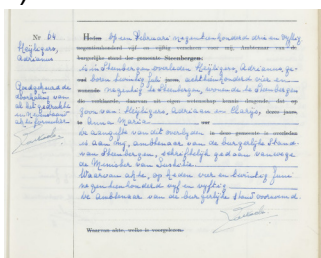 Nº 64
Heijligers,
Adrianus
Goedgekeurd de
doorhaling van
al het gedrukte
in nevenstaand
akte formulier
Heden op een Februari negentienhonderd drie en vijftig
negentienhonderd vijf en vijftig verscheen voor mij, Ambtenaar van de
burgerlijke stand der gemeente Steenbergen:
is in Steenbergen overleden Heijligers, Adrianus, ge-
boren twintig Juli achttienhonderd drie en
negentig te Steenbergen, wonende te Steenbergen
die verklaarde, daarvan uit eigen wetenschap kennis dragende, dat op
zoon van: Heijligers, Adriaan en
Anna Maria
uur
de aangifte van dit overlijden in deze gemeente is overleden
is aan mij, ambtenaar van de burgerlijke stand
van Steenbergen, schriftelijk gedaan vanwege
de Minister van Justitie.
Waarvan akte, op heden vier en twintig Juni
negentienhonderd vijf en vijftig
De ambtenaar van de burgerlijke stand voornoemd.
Waarvan akte, welke is voorgelezen.